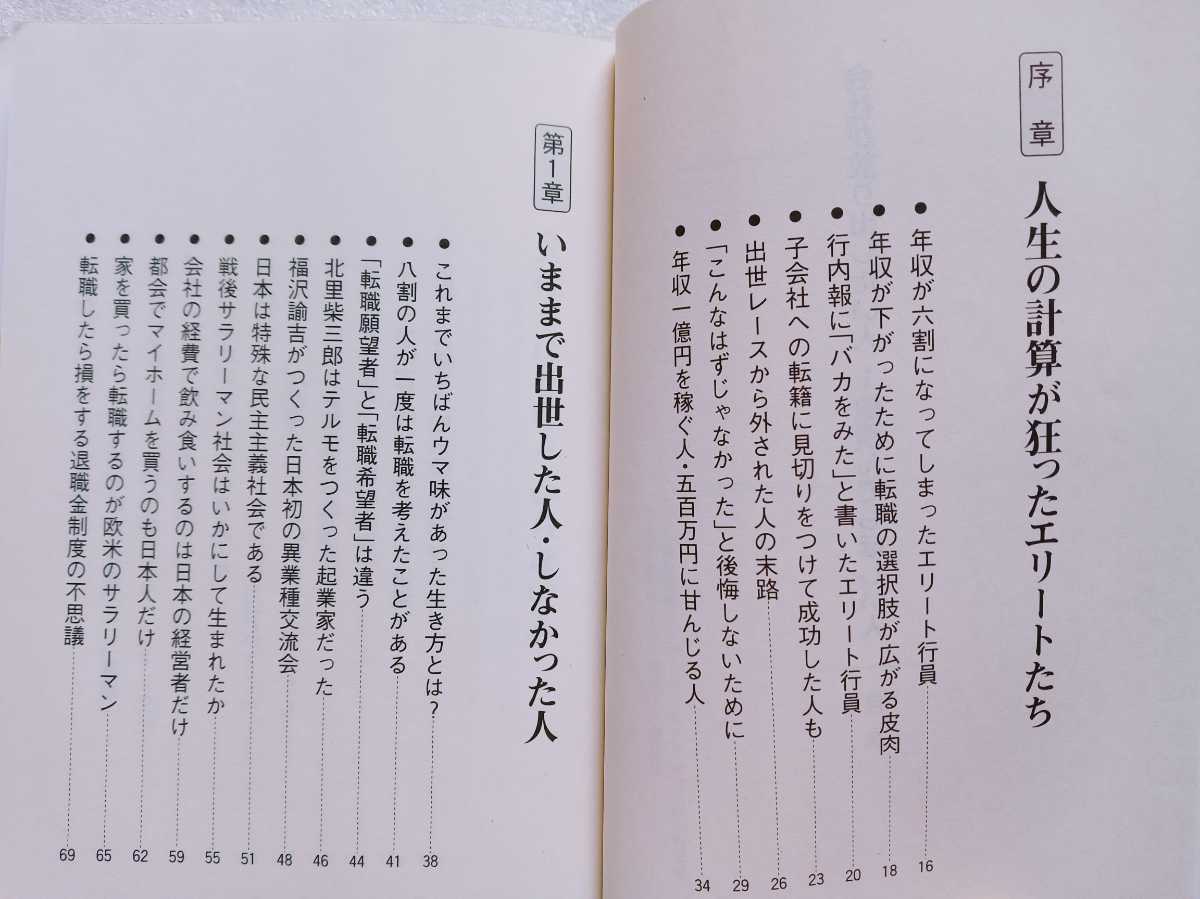 序章
人生の計算が狂ったエリートたち
●年収が六割になってしまったエリート行員……16
●年収が下がったために転職の選択肢が広がる皮肉……18
●行内報に「バカをみた」と書いたエリート行員……20
●子会社への転籍に見切りをつけて成功した人も……23
●出世レースから外された人の末路……26
●「こんなはずじゃなかった」と後悔しないために……29
●年収一億円を稼ぐ人・五百万円に甘んじる人……34
第1章
いままで出世した人・しなかった人
●これまでいちばんウマ味があった生き方とは?……38
●八割の人が一度は転職を考えたことがある……41
●「転職願望者」と「転職希望者」は違う……44
●北里柴三郎はテルモをつくった起業家だった……46
●福沢諭吉がつくった日本初の異業種交流会……48
●日本は特殊な民主主義社会である……51
●戦後サラリーマン社会はいかにして生まれたか……55
●会社の経費で飲み食いするのは日本の経営者だけ……59
●都会でマイホームを買うのも日本人だけ……62
●家を買ったら転職するのが欧米のサラリーマン……65
●転職したら損をする退職金制度の不思議……69